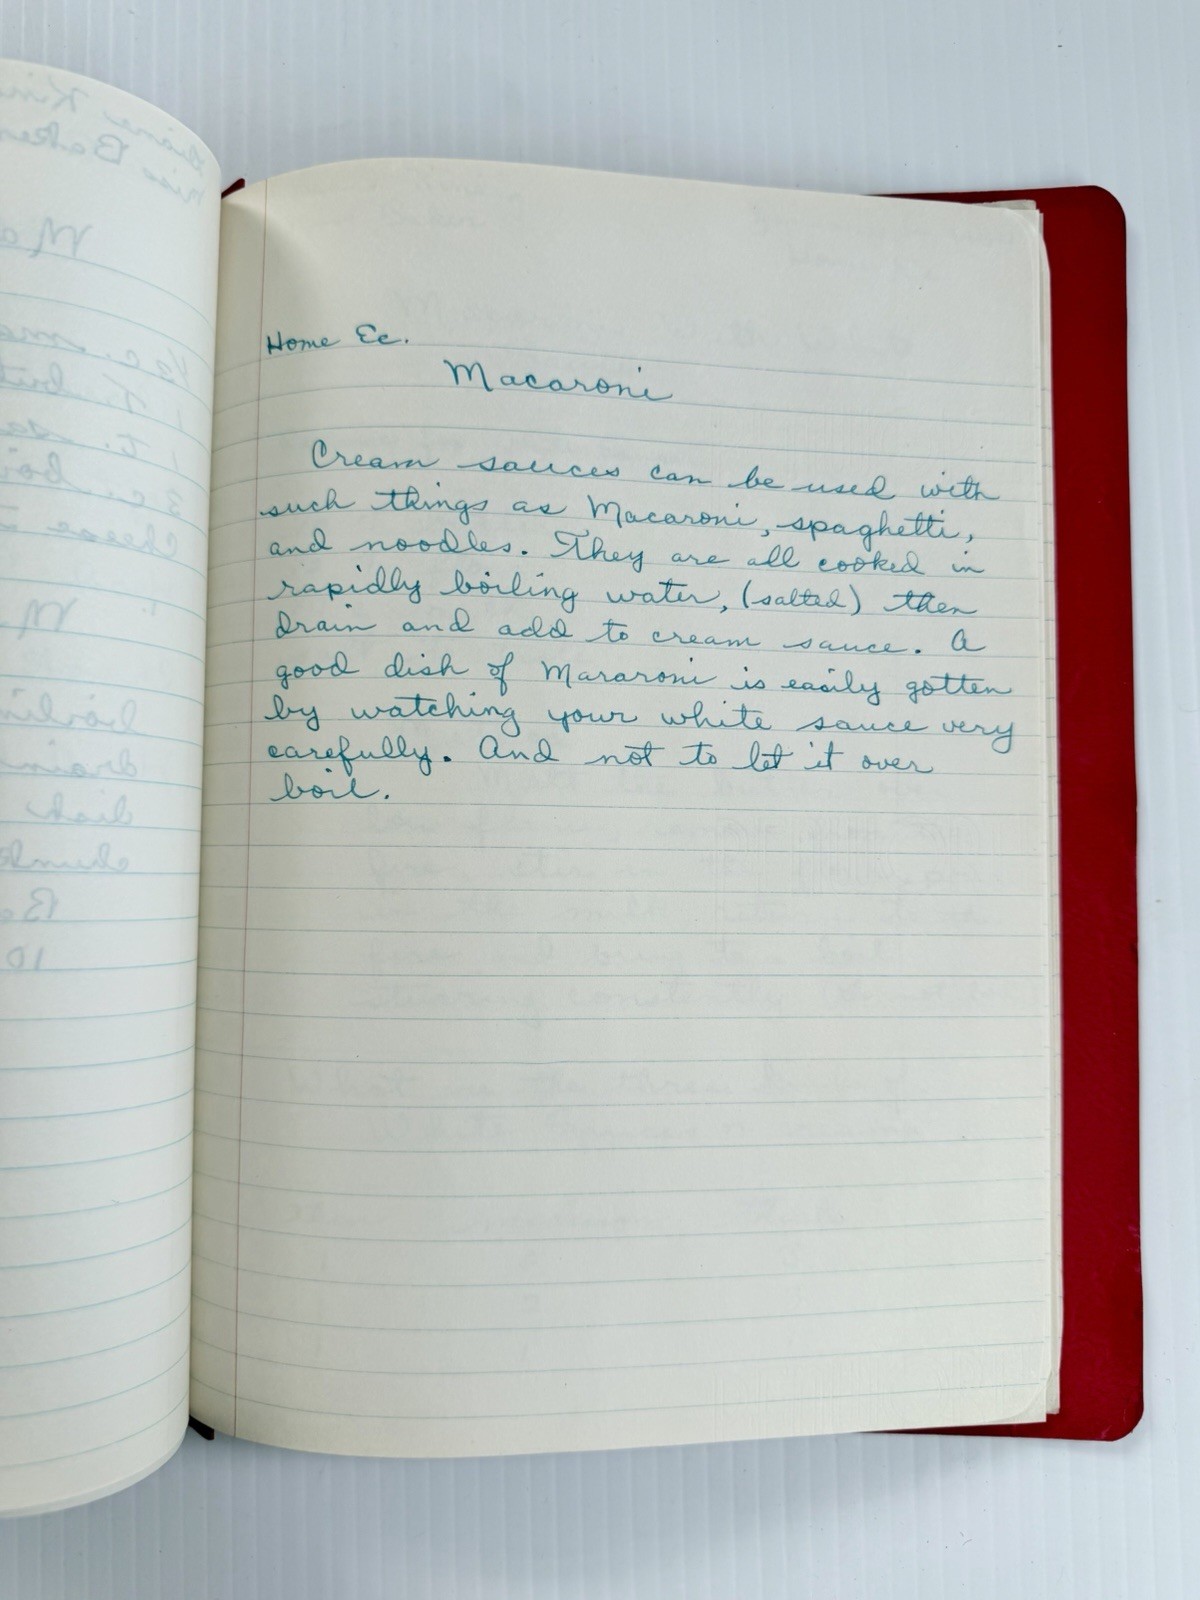 Home Ec.
Macaroni
Cream sauces can be used with
such things as Macaroni, spaghetti,
and noodles. They are all cooked in
rapidly boiling water, (salted) then
drain and add to cream sauce. A
good dish of Mararoni is easily gotten
by watching your white sauce very
carefully. And not to let it over
boil.